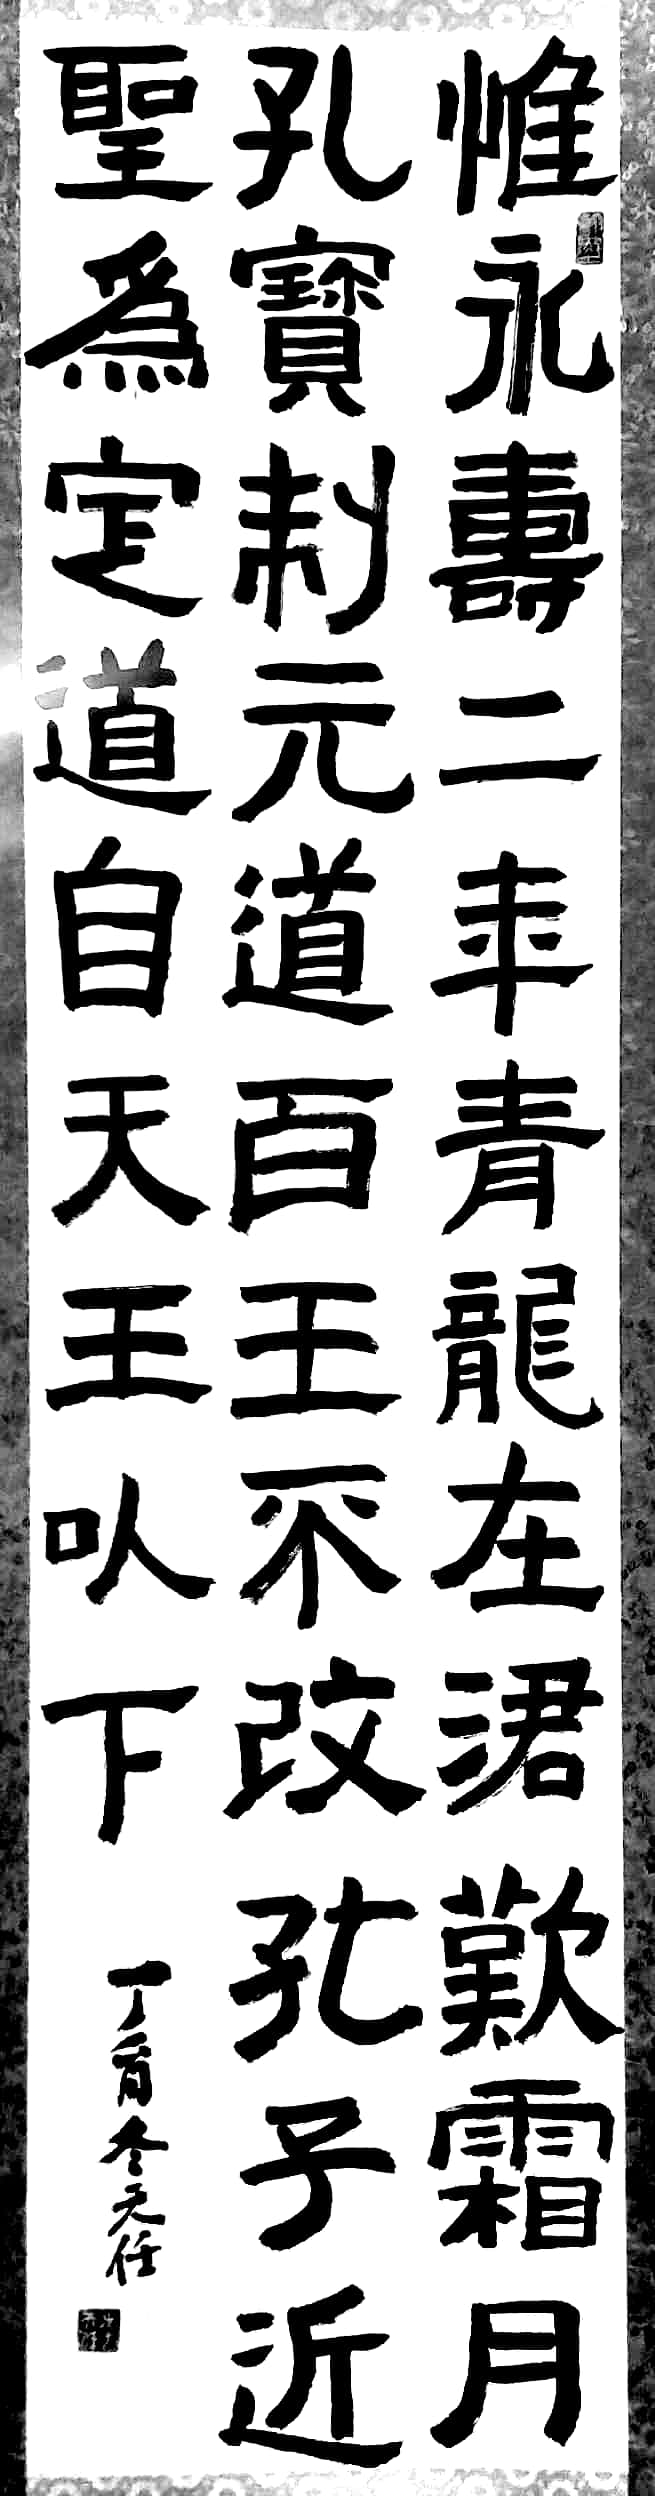 惟永壽二年青龍在涒歎霜月
孔寶制元道百王不改孔子近
聖爲定道自天王以下
丁 冬 任